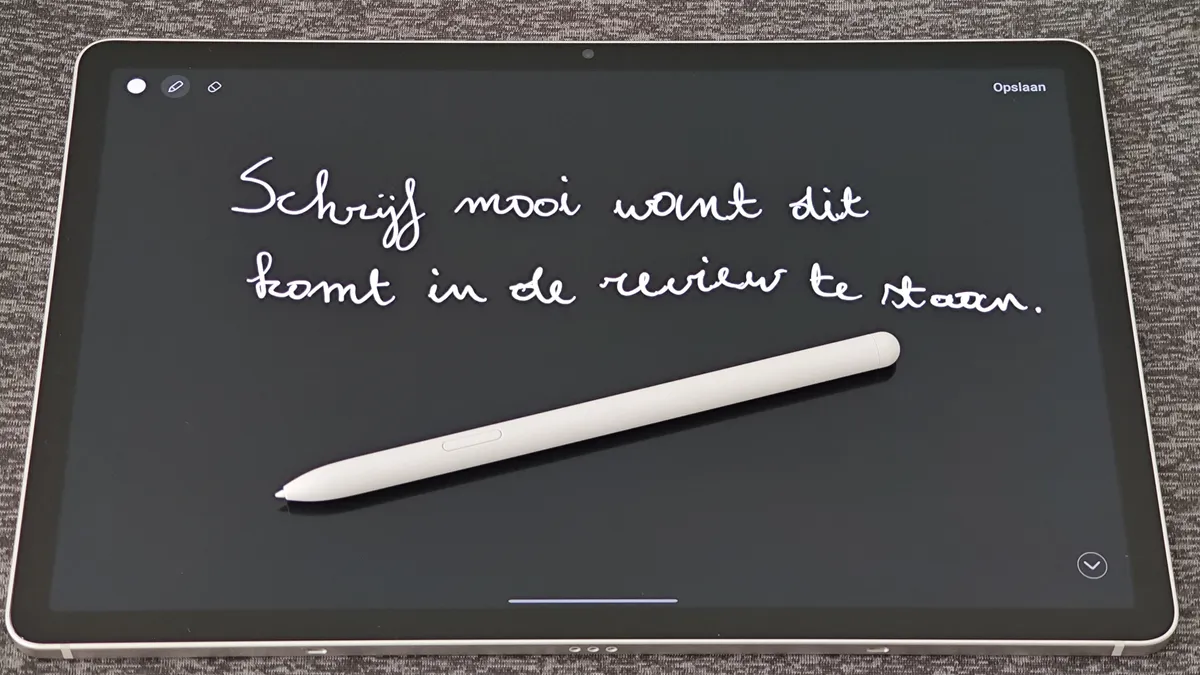 Opslaan
Schrijf mooi want dit
komt in de review te staan.